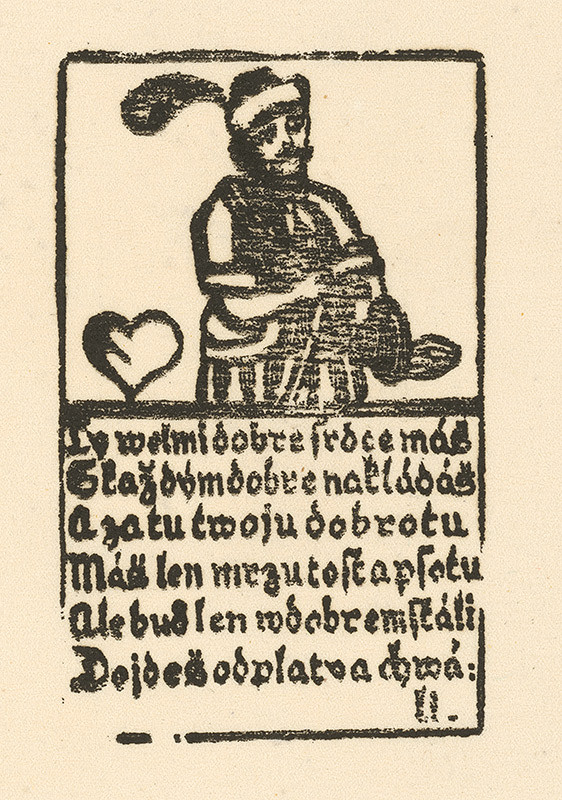 Ty welmi dobre srdce máš
S každým dobre nakládáš
A za tu twoju dobrotu
Máš len mrzutost a psotu
Ale bud len w dobrem stáli
Dojdeš odplaty a chwá:
li.